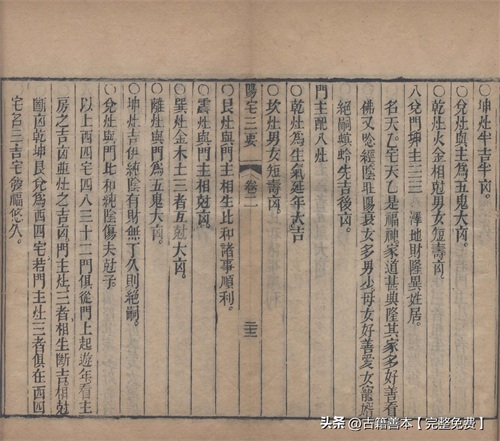 ○坤灶半吉半凶。
○兌灶與主爲五鬼大凶。
○乾灶火金相尅男女短壽凶。
八兌門艮主三三 澤地財隆異姓居。
名天乙宅天乙是福神家道甚興隆其家多好善看
佛又唸經陰旺陽衰女多男少母女好善愛女寵婿
絕嗣螟蛉先吉後凶。
門主配八灶
乾灶爲生氣延年大吉
○坎灶男女短壽凶。
陽宅三要 卷二 三
○艮灶與門主相生比和諸事順利。
○震灶與門主相尅凶。
○巽灶金木土三者互尅大凶。
○離灶與門爲五鬼大凶。
○坤灶吉但純陰有財無丁久則絕嗣。
○兌灶與門比和純陰傷夫尅子。
以上西四宅四八三十二門俱從門上起遊年看主
房之吉凶與灶之吉凶門主灶三者相生斷吉相尅
斷凶乾坤艮兌爲西四宅若門主灶三者俱在西四
宅名三吉宅發福悠久。
头条 @古籍善本【完整免费】